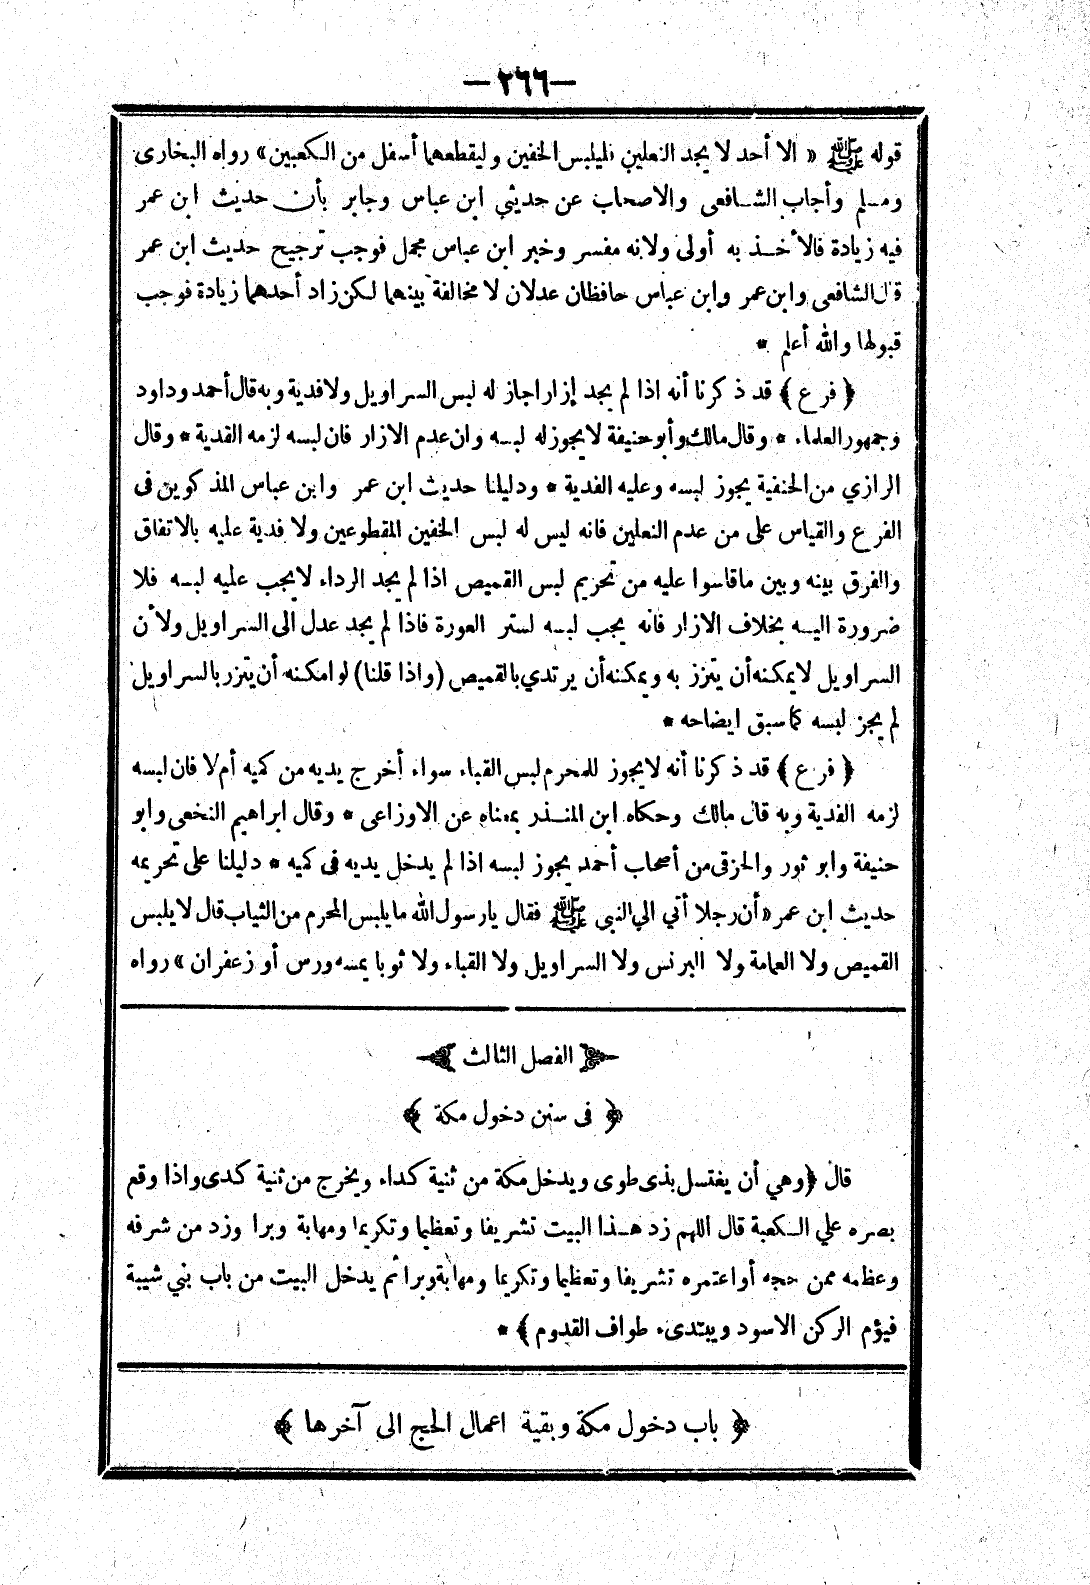 — ٢٦٦ —
قوله ﷺ « الا أحد لا يجد النعلين فليلبس الخفين وليقطعهما أسفل من الكعبين » رواه البخارى
ومسلم وأجاب الشافعى والاصحاب عن حديثي ابن عباس وجابر بأن حديث ابن عمر
فيه زيادة فالأخذ به أولى ولانه مفسر وخبر ابن عباس مجمل فوجب ترجيح حديث ابن عمر
قال الشافعى وابن عمر وابن عباس حافظان عدلان لا مخالفة بينهما لكن زاد أحدهما زيادة فوجب
قبولها والله أعلم *
﴿ فرع ﴾ قد ذكرنا أنه اذا لم يجد إزارا جاز له لبس السراويل ولا فدية وبه قال أحمد وداود
وجمهور العلماء * وقال مالك وأبو حنيفة لا يجوز له لبسه وان عدم الازار فان لبسه لزمه الفدية * وقال
الرازي من الحنفية يجوز لبسه وعليه الفدية * ودليلنا حديث ابن عمر وابن عباس المذكورين فى
الفرع والقياس على من عدم النعلين فانه ليس له لبس الخفين المقطوعين ولا فدية عليه بالاتفاق
والفرق بينه وبين ما قاسوا عليه من تحريم لبس القميص اذا لم يجد الرداء لا يجب عليه لبسه فلا
ضرورة اليه بخلاف الازار فانه يجب لبسه لستر العورة فاذا لم يجد عدل الى السراويل ولأن
السراويل لا يمكنه أن يتزر به ويمكنه أن يرتدي بالقميص (واذا قلنا) لو امكنه أن يتزر بالسراويل
لم يجز لبسه كما سبق ايضاحه *
﴿ فرع ﴾ قد ذكرنا أنه لا يجوز للمحرم لبس القباء سواء أخرج يديه من كميه أم لا فان لبسه
لزمه الفدية وبه قال مالك وحكاه ابن المنذر بمعناه عن الاوزاعى * وقال ابراهيم النخعى وابو
حنيفة وابو ثور والخرقى من أصحاب أحمد يجوز لبسه اذا لم يدخل يديه فى كميه * دليلنا على تحريمه
حديث ابن عمر « أن رجلا أتي الي النبى ﷺ فقال يارسول الله ما يلبس المحرم من الثياب قال لا يلبس
القميص ولا العمامة ولا البرنس ولا السراويل ولا القباء ولا ثوبا يمسه ورس أو زعفران » رواه
الفصل الثالث
﴿ فى سنن دخول مكة ﴾
قال ﴿ وهي أن يغتسل بذى طوى ويدخل مكة من ثنية كداء ويخرج من ثنية كدى واذا وقع
بصره علي الكعبة قال اللهم زد هذا البيت تشريفا وتعظيما وتكريما ومهابة وبرا وزد من شرفه
وعظمه ممن حجه أو اعتمره تشريفا وتعظيما وتكريما ومهابة وبرا ثم يدخل البيت من باب بني شيبة
فيؤم الركن الاسود ويبتدىء طواف القدوم ﴾ *
﴿ باب دخول مكة وبقية اعمال الحج الى آخرها ﴾